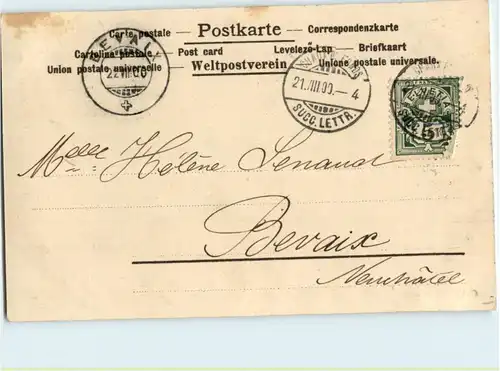 Carte postale — Postkarte — Correspondenzkarte
Cartolina postale — Post card — Levelező-Lap — Briefkaart
Union postale universelle — Weltpostverein — Unione postale universale.
BEVAIX
22.VIII.00
21.VIII.00.– 4
SUCC. LETTR.
HELVETIA
Melle Hélène
Bevaix
Neuchâtel